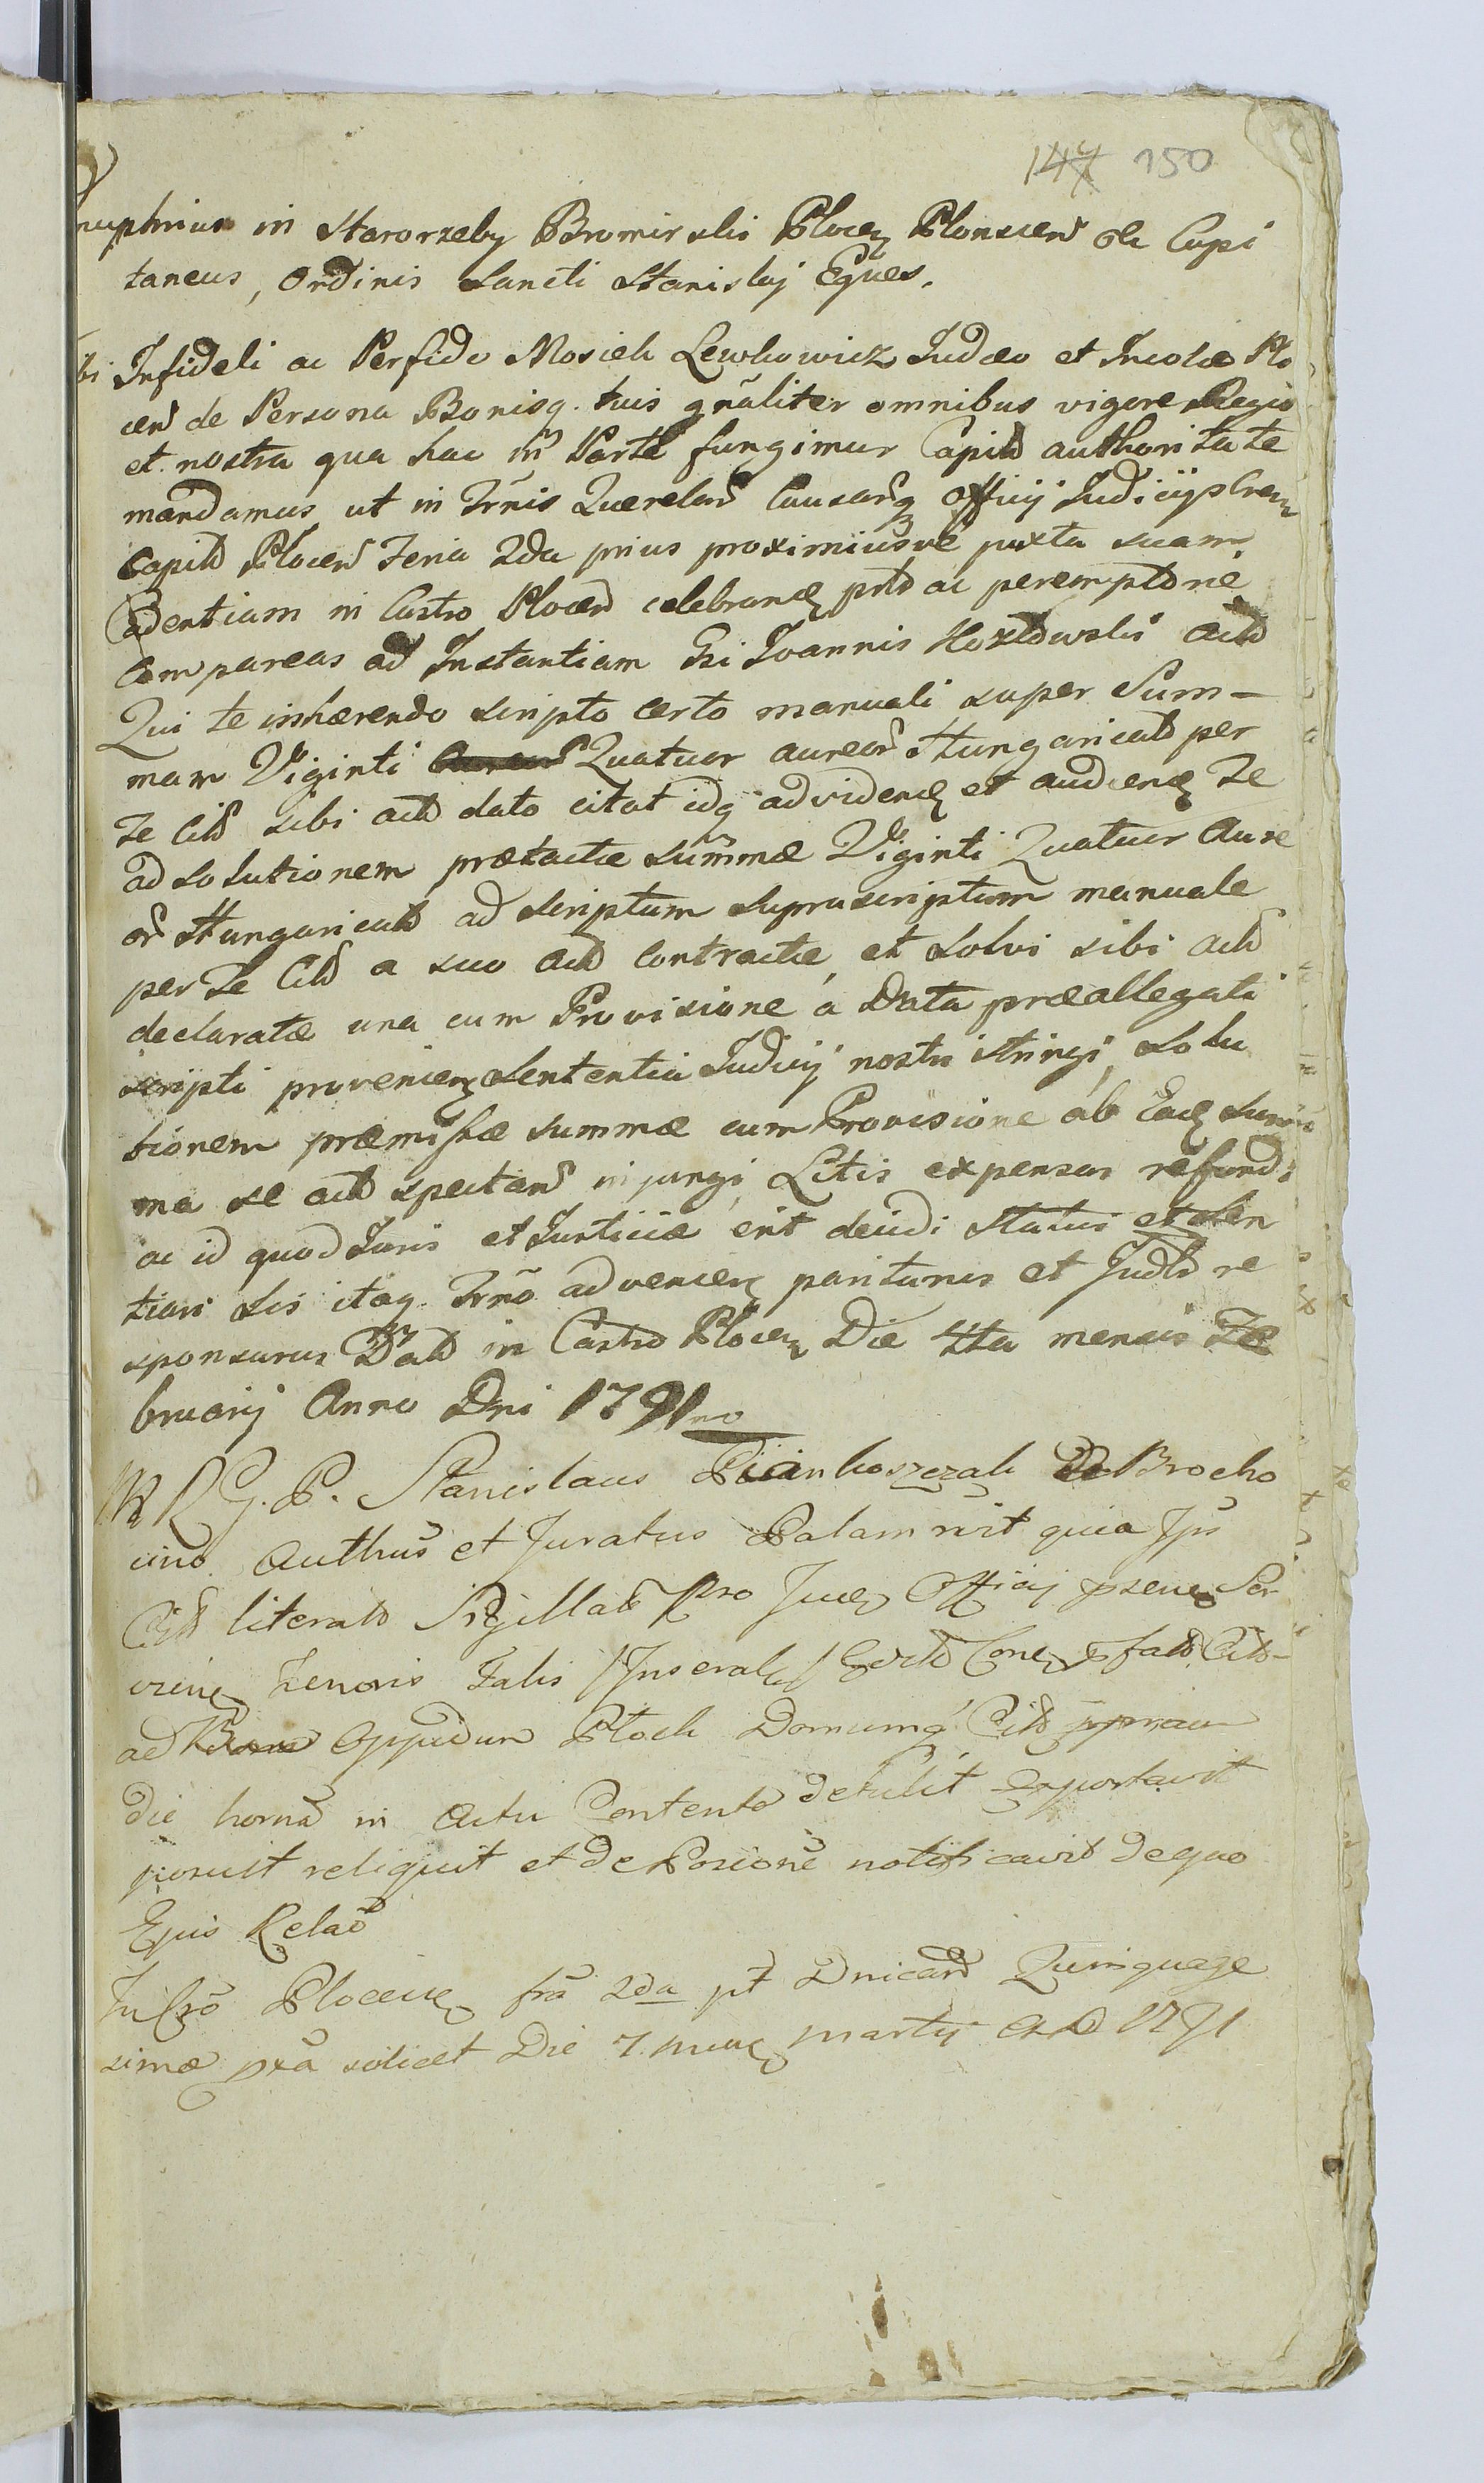 147 150
nuphrius in Starorzeby Bromirski Plocen Plonscen &c Capi
taneus, Ordinis Sancti Stanislaj Eques.
ibi Infideli ac Perfido Mosiek Lewkowicz Judæo et Incolæ Plo
cen de Persona Bonisq. tuis gñaliter omnibus vigore Regia
et nostra qua hac in Parte fungimur Capit authoritate
mandamus ut in Trñis Querelar Causarq Officij Judicijsq
Capit Plocen Feria 2da prius proximiusve juxta suam
Cadentiam in Castro Plocen celebran ptt ac peremptorie
Compareas ad Instantiam Gsi Joannis Kozłowski Act
Qui te inhærendo scripto certo manuali super Sum-
mam Viginti Quatuor aureor Hungarical per
Te Cit sibi act dato citat idq ad videnq et audienq Te
ad solutionem prætactæ summæ Viginti Quatuor Aure
or Hungarical ad scriptum suprascriptum manuale
per Te Cit a suo Act Contractæ et solvi sibi act
declaratæ una cum Provisione a Data præallegati
scripti provenien Sententia Judicij nostri stringi, solu
tionem præmissæ summæ cum Provisione ab Ead Sum̃
ma se act spectan injungi Litis expensas reffundi
ac id quod Juris et Justiciæ erit decidi statui et sen
tiari Sis itaq. Trño advenien pariturus et Judtt re
sponsurus Datt in Castro Plocen Die 4ta mensis Fe
bruarij Anno Dni 1791mo
M R G. P. Stanislaus Piankoszczak De Brocho
cino Authus et Juratus Palam rñt quia Jps
Citt literatt Sigillatt Pro Juen Officij psen Scr
visin Tenoris Talis /Inseratur/ Cone Citt-
ad Bona Oppidum Płock Domumq Citt ppriam
die horna in Actu Contento detulit Exportavit
posuit reliquit et de Posiõne notificavit de quo
Ejus Relaõ
In Cró Plocen frã 2da pt Dnicam Quinquage
simæ pxã scilicet Die 7. Mens Martij A D 1791